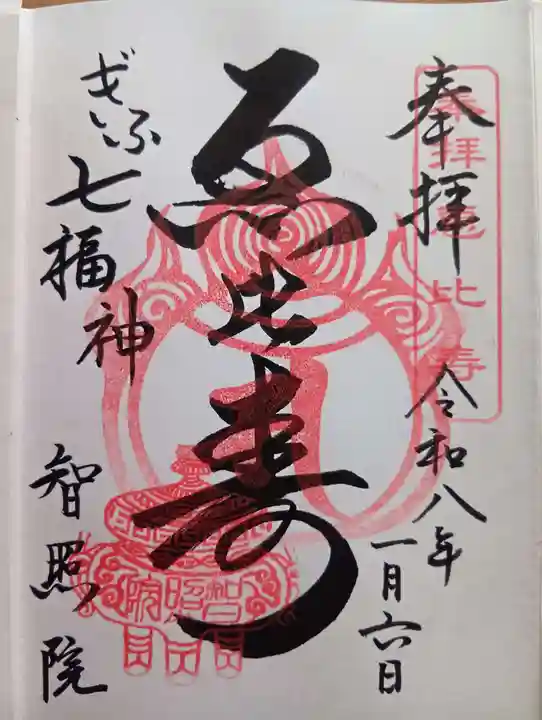 奉拝
令和八年
一月六日
奉拝恵比寿
恵比寿
智照院
ぎふ七福神
智照院